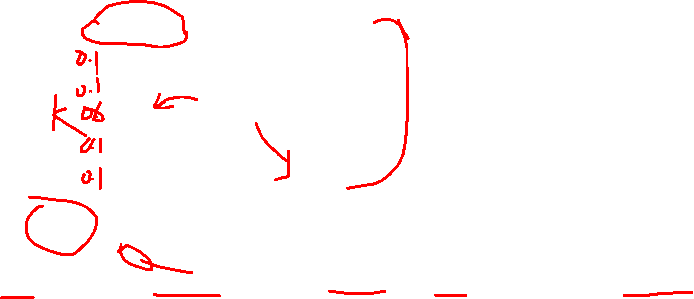 0.1
0.1
06
01
01